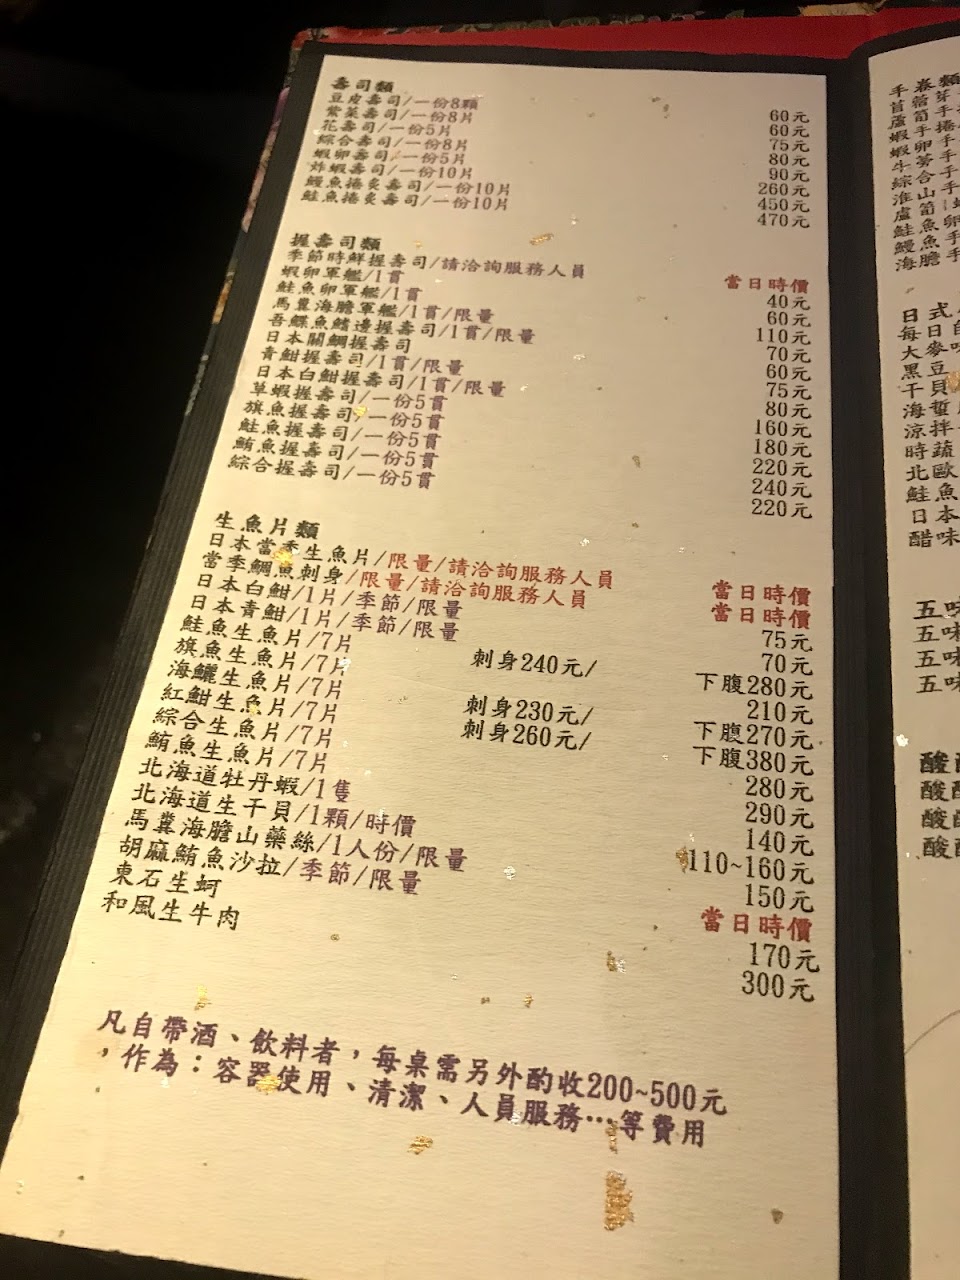 壽司類
豆皮壽司/一份8顆 60元
紫菜壽司/一份8片 60元
花壽司/一份5片 75元
綜合壽司/一份8片 80元
蝦卵壽司/一份5片 90元
炸蝦壽司/一份10片 260元
鰻魚捲炙壽司/一份10片 450元
鮭魚捲炙壽司/一份10片 470元
握壽司類
季節時鮮握壽司/請洽詢服務人員 當日時價
蝦卵軍艦/1貫 40元
鮭魚卵軍艦/1貫 60元
馬糞海膽軍艦/1貫/限量 110元
吾鰈魚鰭邊握壽司/1貫/限量 70元
日本關鯛握壽司 60元
青魽握壽司/1貫/限量 75元
日本白魽握壽司/1貫/限量 80元
草蝦握壽司/一份5貫 160元
旗魚握壽司/一份5貫 180元
鮭魚握壽司/一份5貫 220元
鮪魚握壽司/一份5貫 240元
綜合握壽司/一份5貫 220元
生魚片類
日本當季生魚片/限量/請洽詢服務人員 當日時價
當季鯛魚刺身/限量/請洽詢服務人員 當日時價
日本白魽/1片/季節/限量 75元
日本青魽/1片/季節/限量 70元
鮭魚生魚片/7片 刺身240元/ 下腹280元
旗魚生魚片/7片 210元
海鱺生魚片/7片 刺身230元/ 下腹270元
紅魽生魚片/7片 刺身260元/ 下腹380元
綜合生魚片/7片 280元
鮪魚生魚片/7片 290元
北海道牡丹蝦/1隻 140元
北海道生干貝/1顆/時價 110~160元
馬糞海膽山藥絲/1人份/限量 150元
胡麻鮪魚沙拉/季節/限量 當日時價
東石生蚵 170元
和風生牛肉 300元
凡自帶酒、飲料者，每桌需另外酌收200~500元
，作為：容器使用、清潔、人員服務…等費用
手卷類
苜蓿芽
蘆筍手
蝦手捲
蝦卵手
牛蒡手
綜合手
淮山手
蘆筍
鮭魚卵
鰻魚手
海膽手
日式
每日
大麥
黑豆
干貝
海蜇
涼拌
時蔬
北歐
鮭魚
日本
醋味
五味
五味
五味
五味
酸
酸
酸
酸